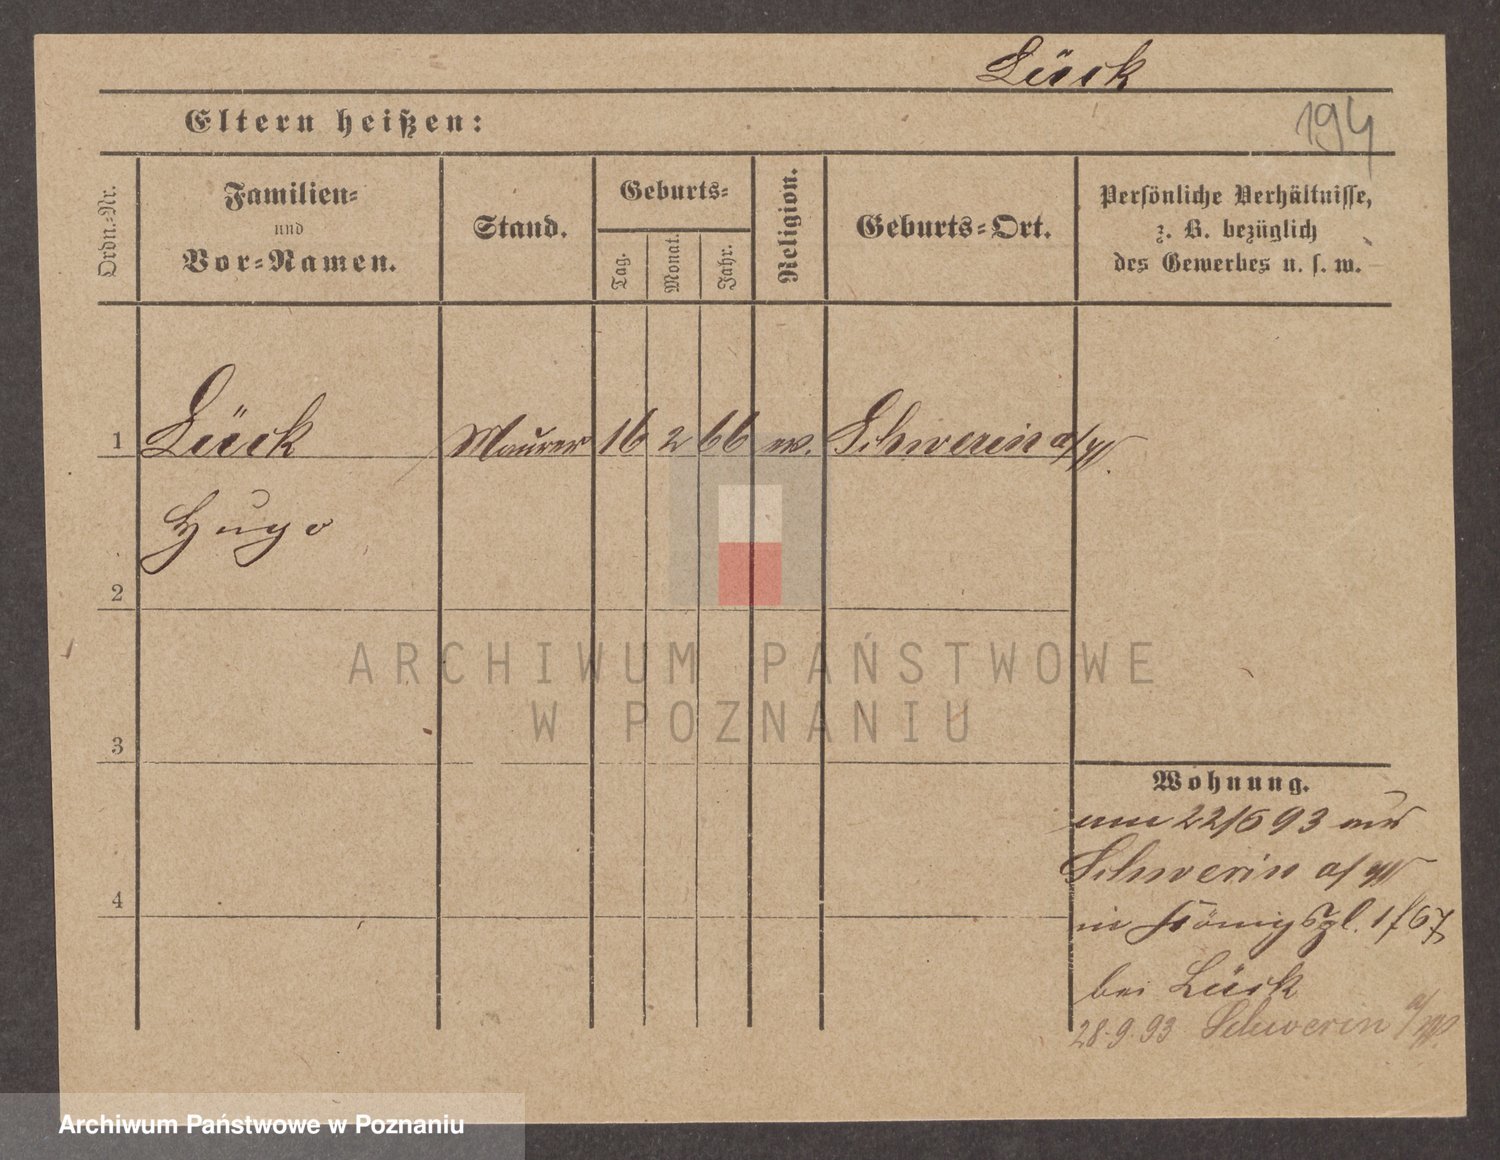 Lück
Eltern heißen:
194
Ordn.-Nr.
Familien-
und
Vor-Namen.
Stand.
Geburts-
Tag.
Monat.
Jahr.
Religion.
Geburts-Ort.
Persönliche Verhältnisse,
z. B. bezüglich
des Gewerbes u. s. w.
1 Lück Maurer 16 2 66 ev. Schwerin a/W.
Hugo
2
3
4
Wohnung.
22/6 93 aus
Schwerin a/W
in Königspl. 1/67
bei Lück
28.9.93 Schwerin a/W.
ARCHIWUM PAŃSTWOWE
W POZNANIU
Archiwum Państwowe w Poznaniu